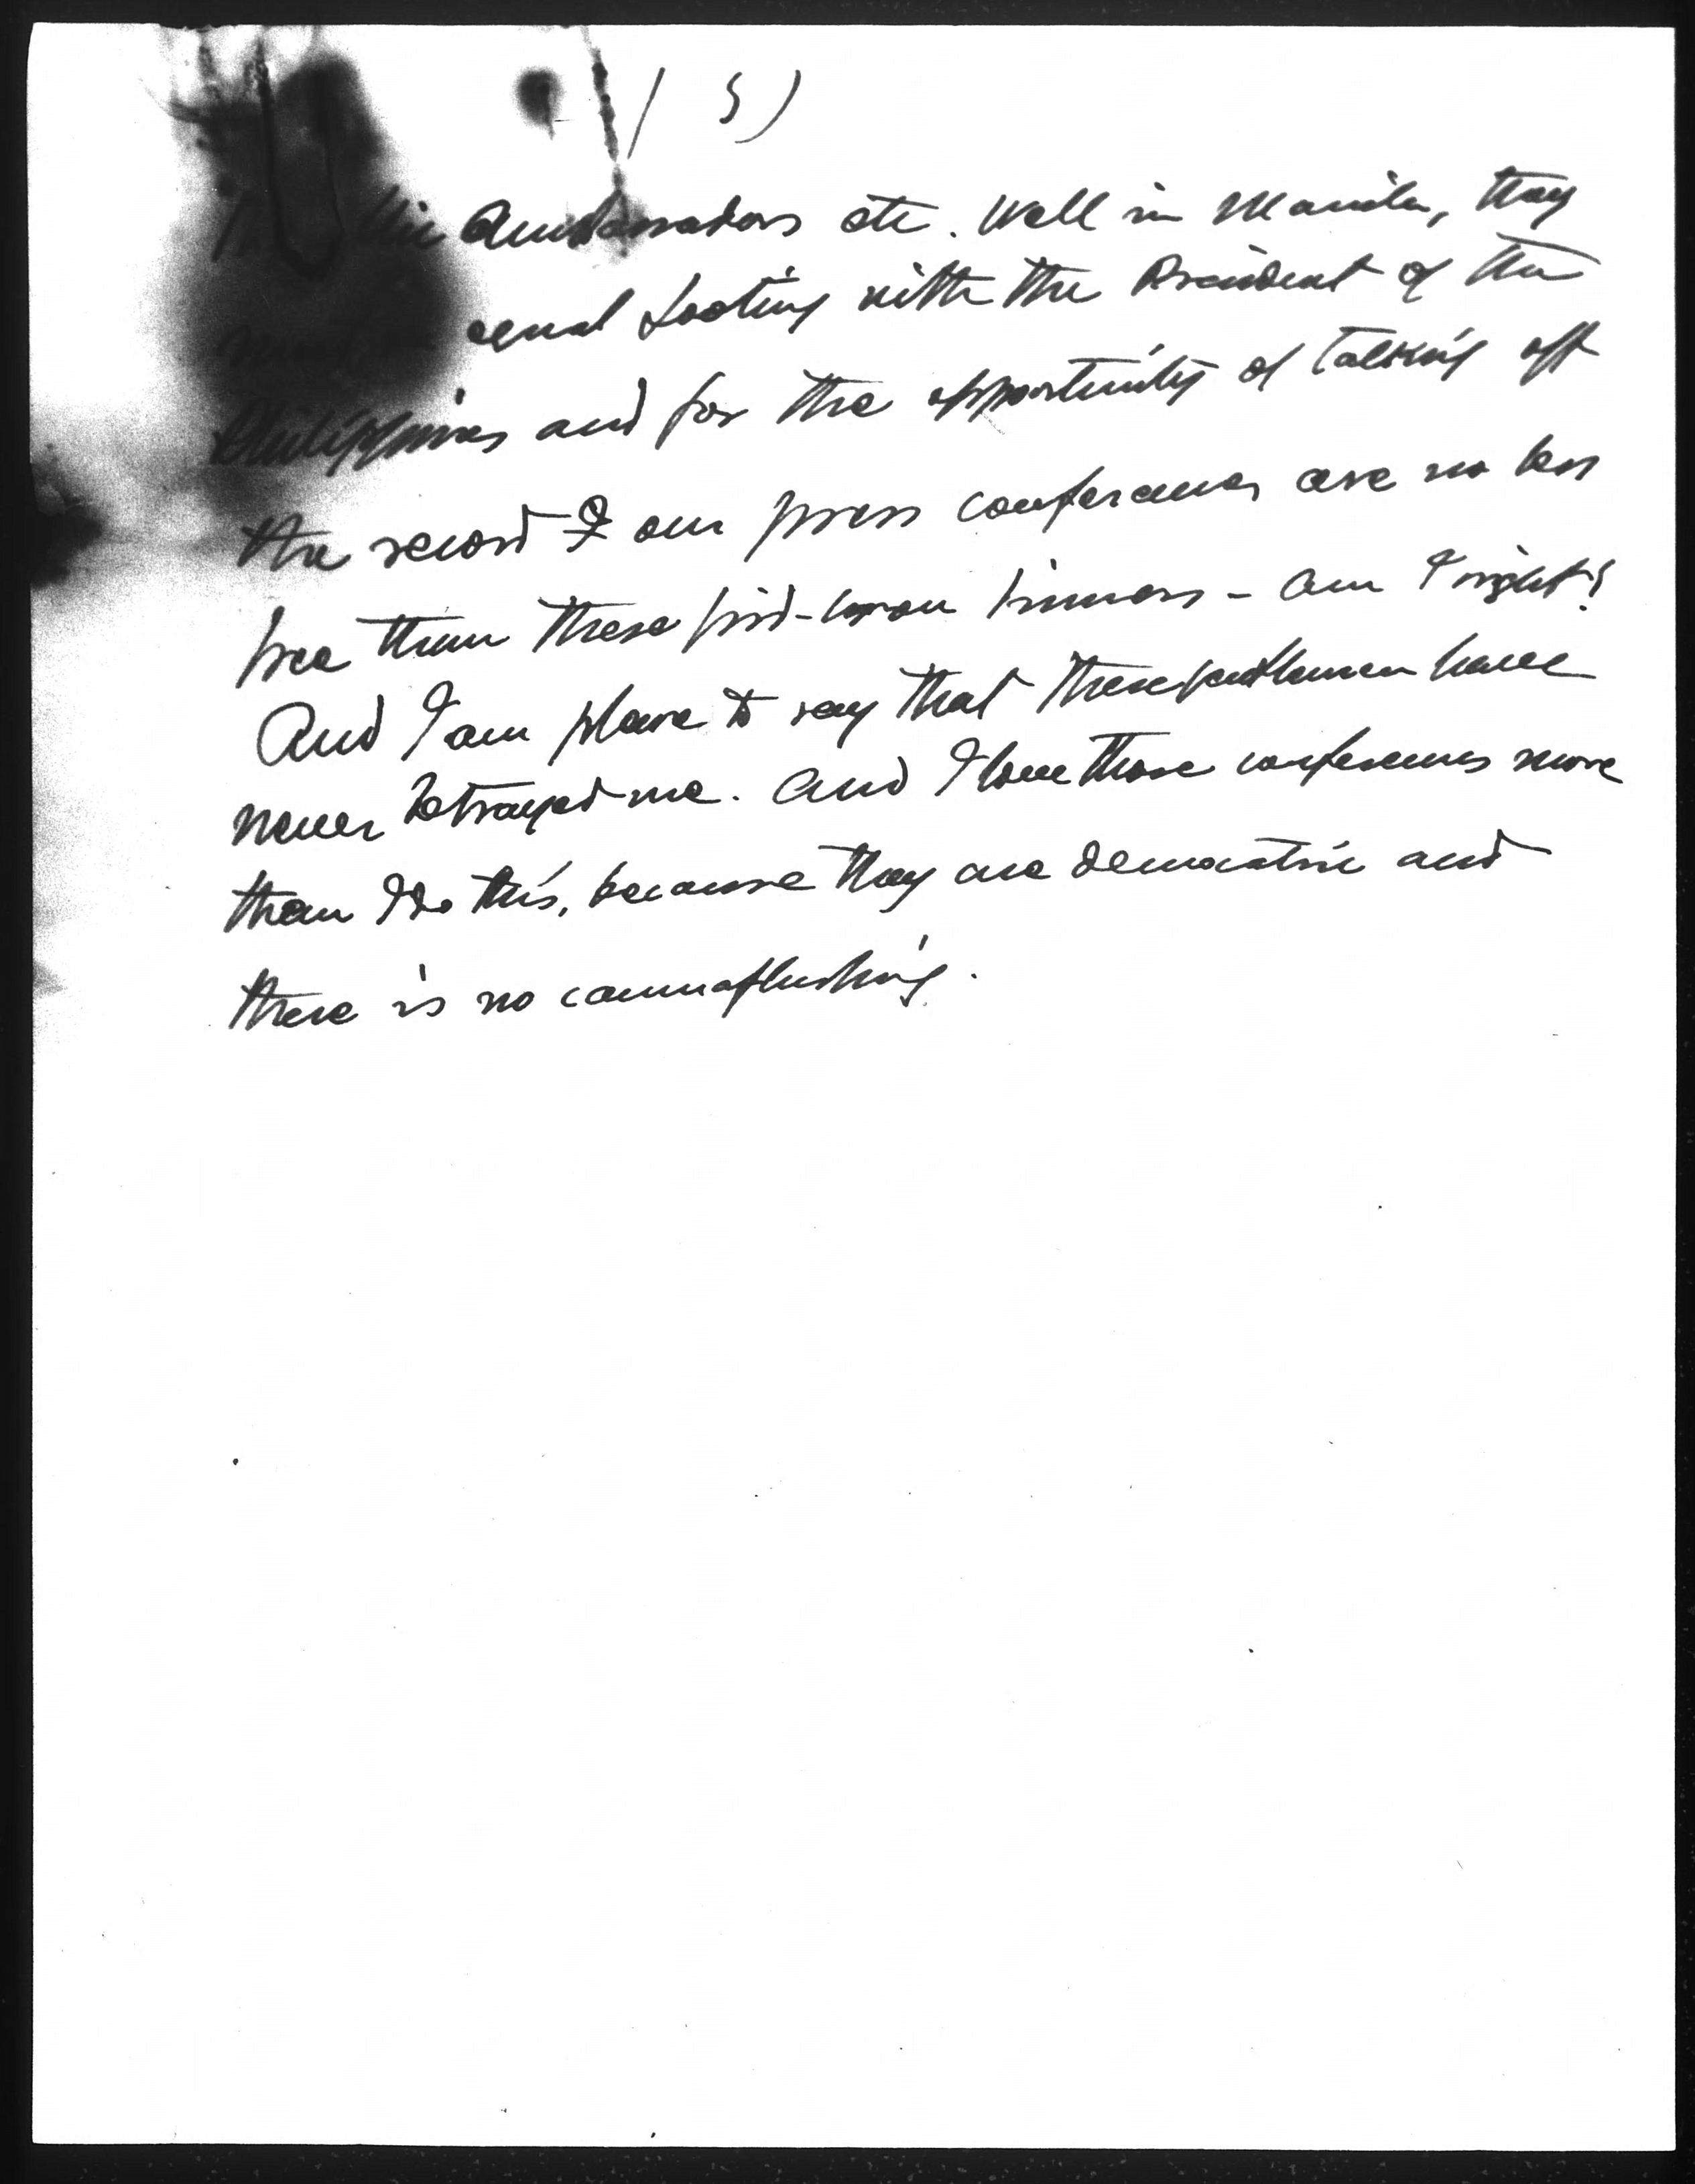 ( 5 )
Ambassadors etc. Well in Manila, they
equal footing with the President of the
Philippines and for the opportunity of talking off
the record & our press conferences are no less
free than these grid-iron dinners - am I right?
And I am to say that these gentlemen have
never betrayed me. And I love those conferences more
than I do this, because they are democratic and
there is no